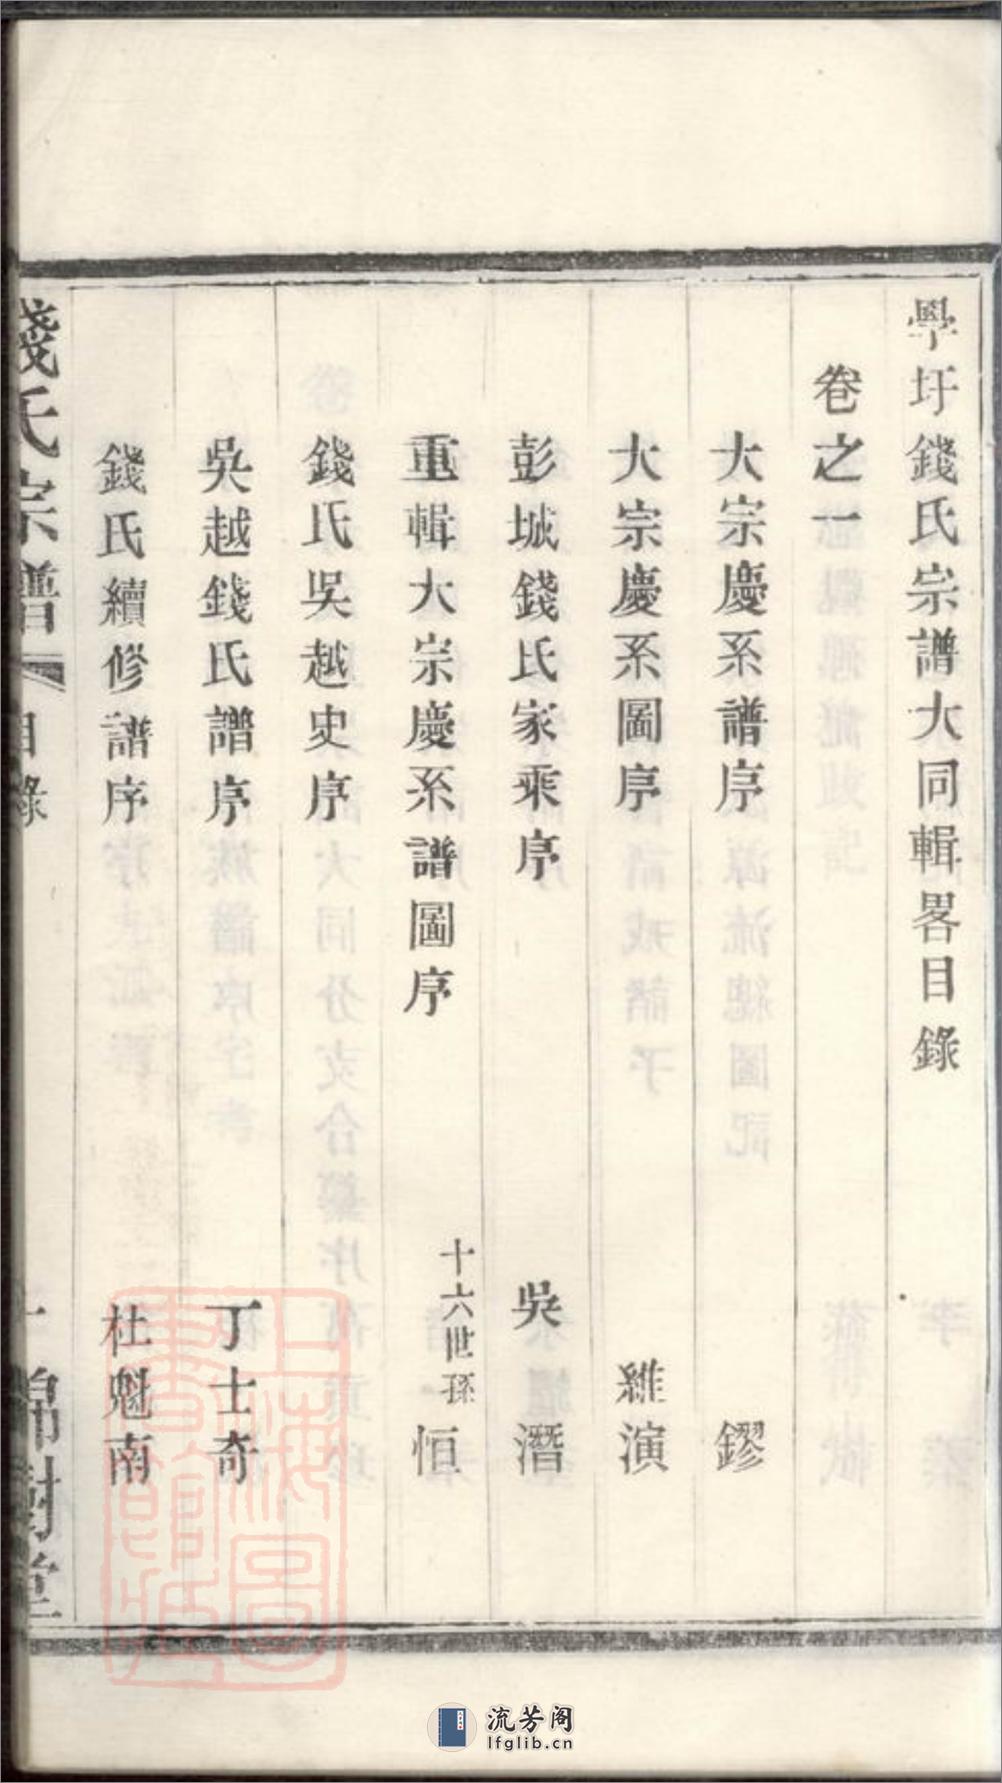 學圩錢氏宗譜大同輯畧目錄
卷之一
大宗慶系譜序 鏐
大宗慶系圖序 維演
彭城錢氏家乘序 吳潛
重輯大宗慶系譜圖序 十六世孫恒
錢氏吳越史序
吳越錢氏譜序 丁士奇
錢氏續修譜序 杜魁南
錢氏宗譜 目錄 一 錦樹堂
上海圖書館藏
流芳阁
lfglib.cn